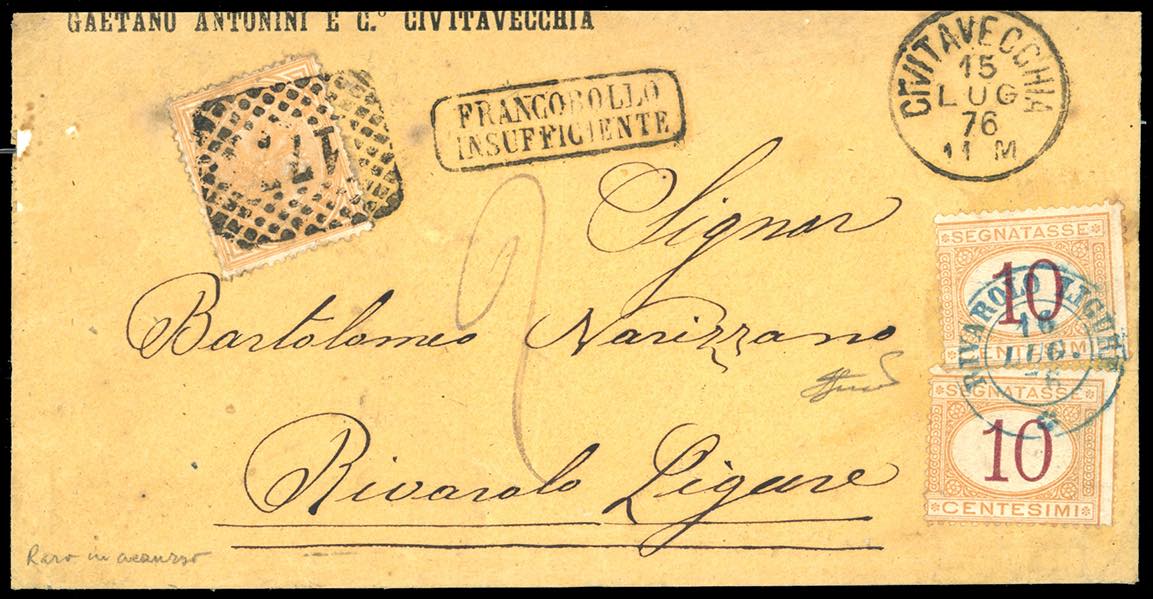 GAETANO ANTONINI E C.º CIVITAVECCHIA
FRANCOBOLLO
INSUFFICIENTE
CIVITAVECCHIA
15
LUG
76
11 M
Signor
Bartolomeo Narizzano
Rivarolo Ligure
2
SEGNATASSE
10
CENTESIMI
RIVAROLO LIGURE
16
LUG.
76
SEGNATASSE
10
CENTESIMI
Raro in